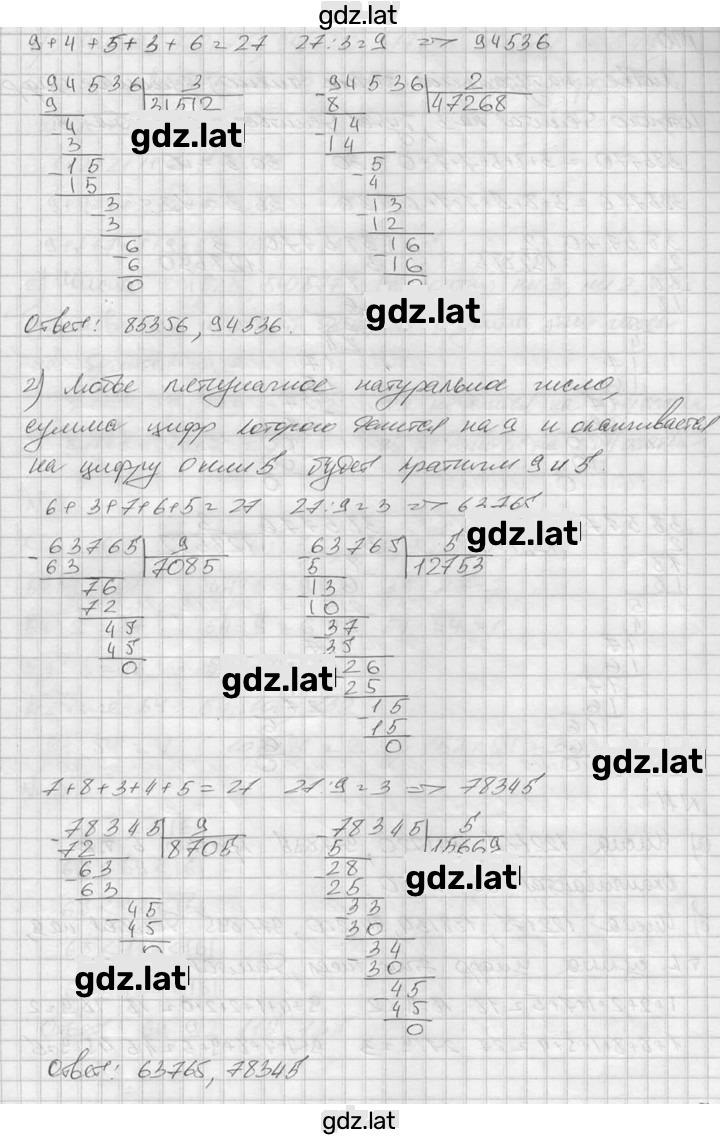 gdz.lat
9+4+5+3+6=27 27:3=9 => 94536
94536 3 94536 2
9 31512 8 47268
4 14
3 14
15 5
15 4
3 13
3 12
6 16
6 16
0 0
gdz.lat
gdz.lat
Ответ: 85356, 94536.
2) Любое пятизначное натуральное число,
сумма цифр которого делится на 9 и оканчивается
на цифру 0 или 5 будет кратным 9 и 5.
6+3+7+6+5=27 27:9=3 => 63765
gdz.lat
63765 9 63765 5
63 7085 5 12753
76 13
72 10
45 37
45 35
0 26
25
15
15
0
gdz.lat
gdz.lat
7+8+3+4+5=27 27:9=3 => 78345
78345 9 78345 5
72 8705 5 15669
63 28
63 25
45 33
45 30
0 34
30
45
45
0
gdz.lat
gdz.lat
Ответ: 63765, 78345
gdz.lat